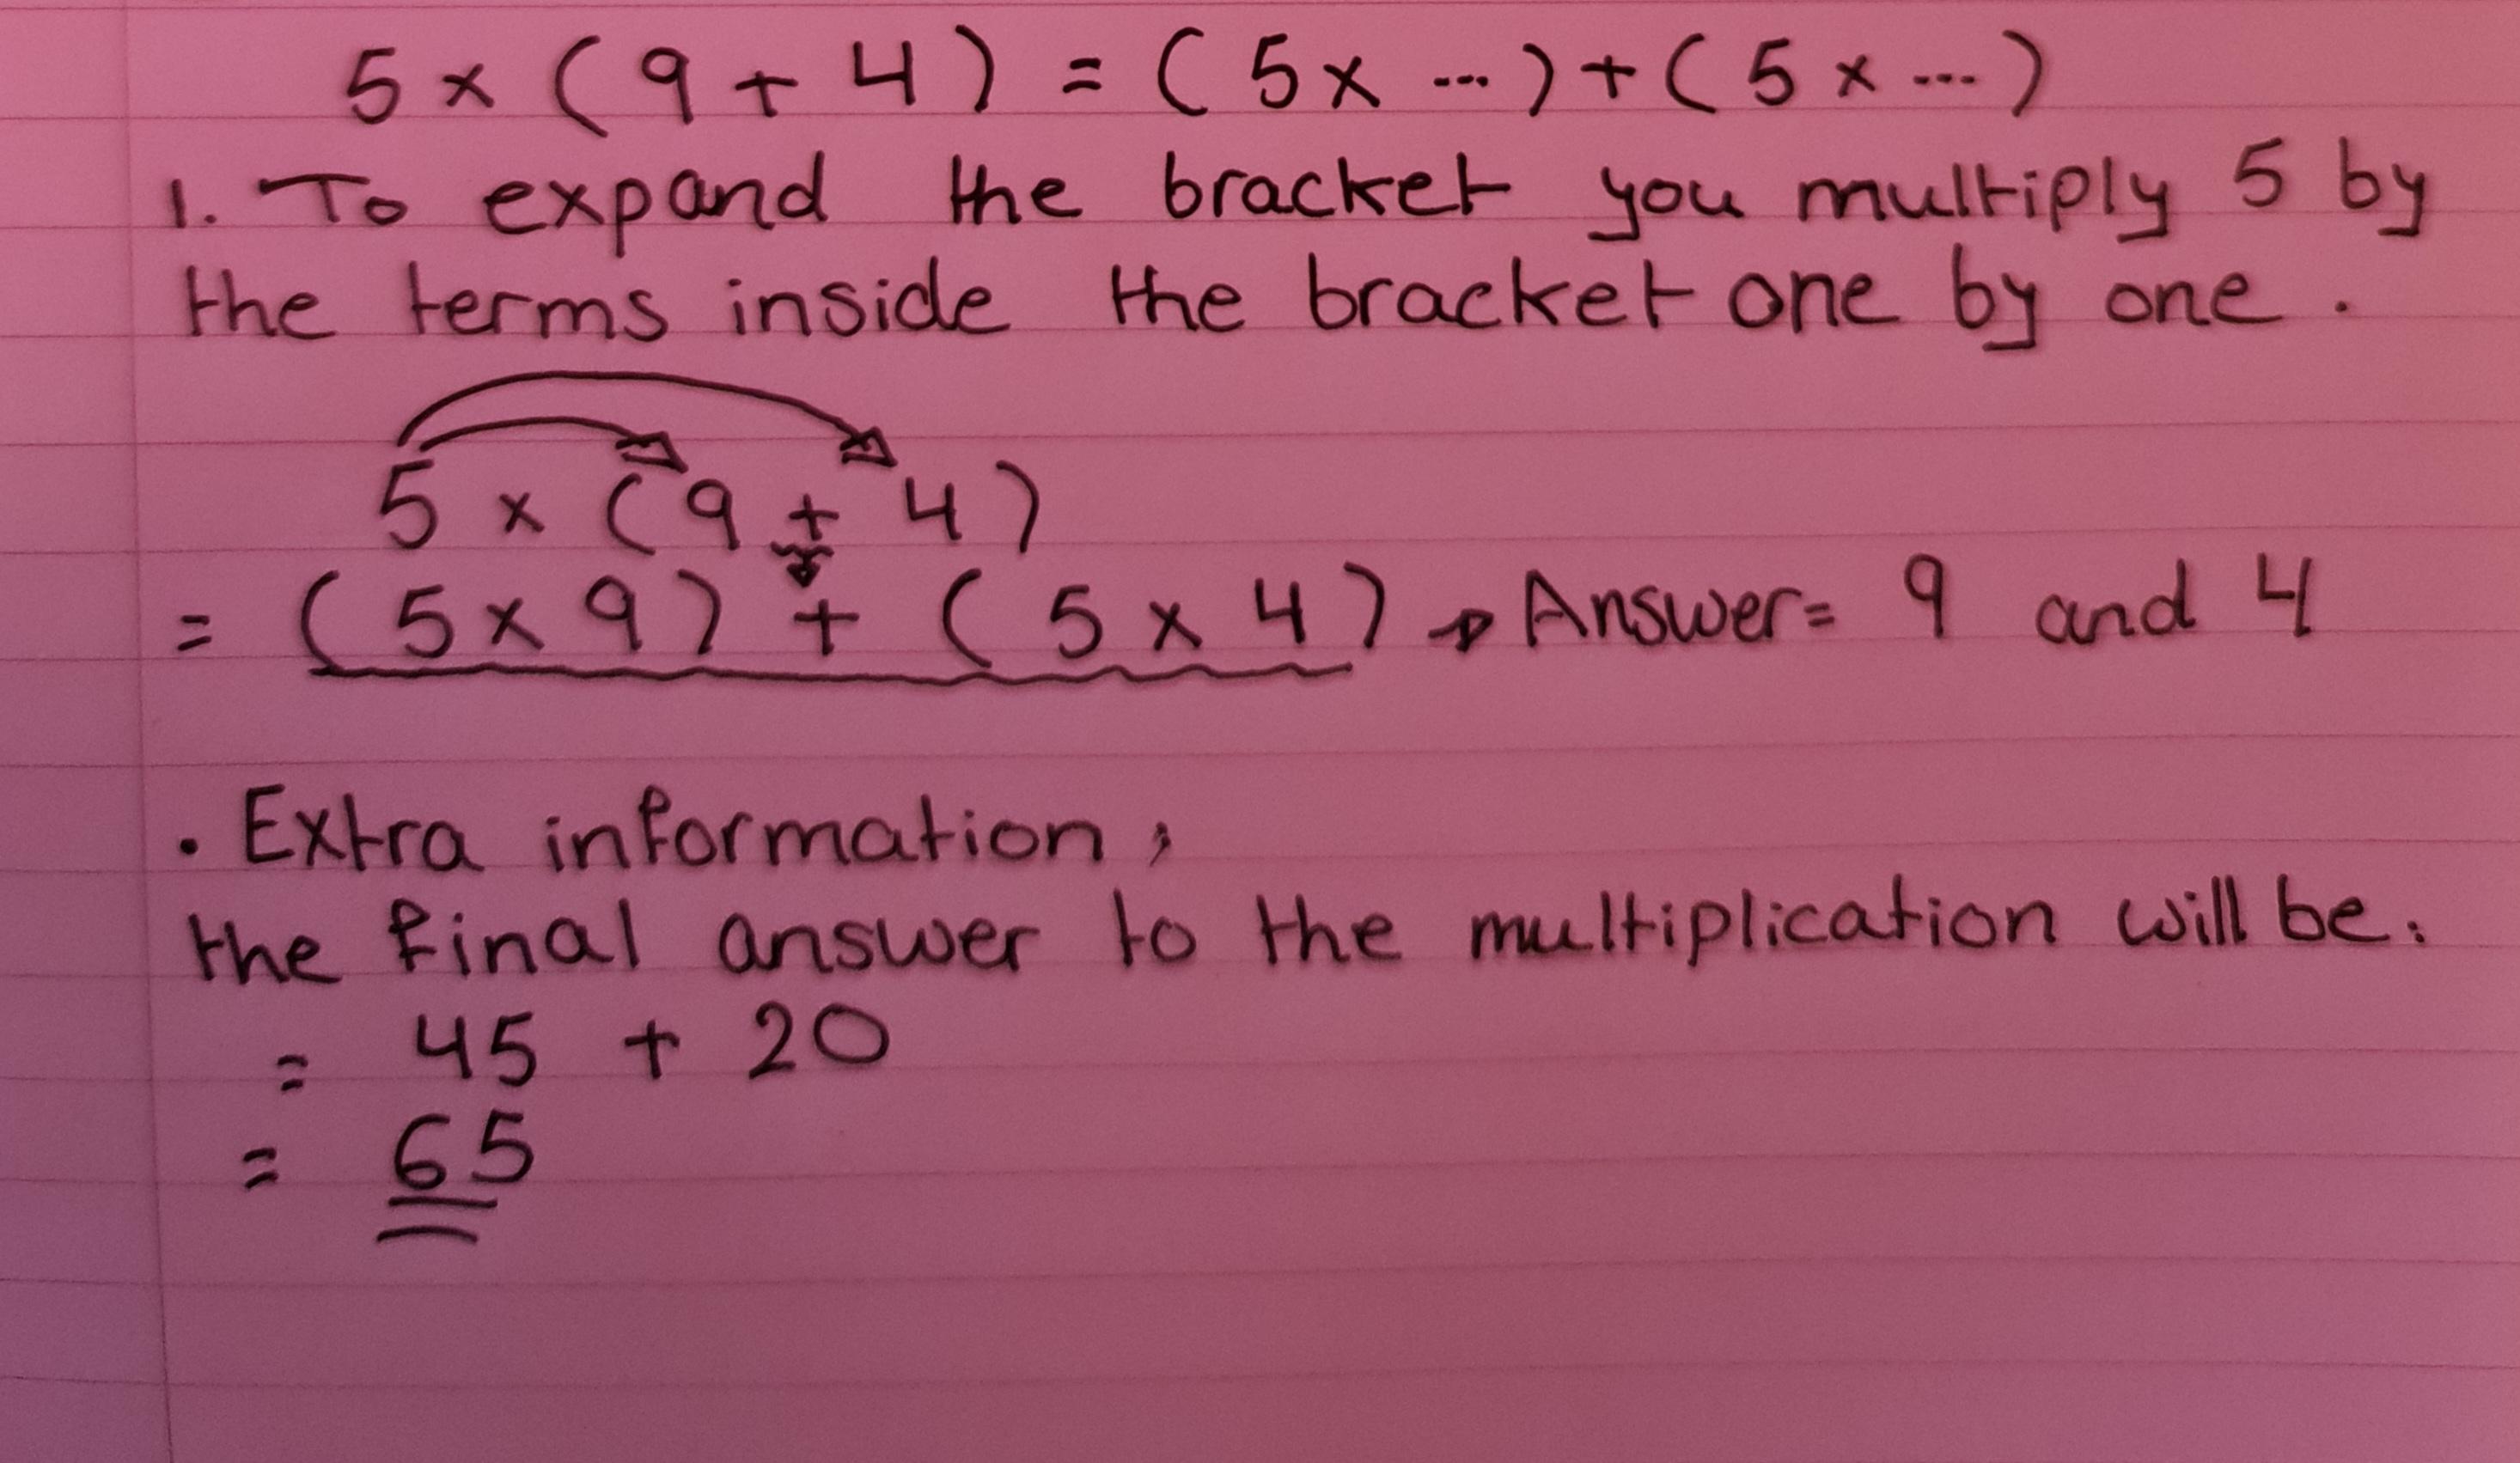 5 × ( 9 + 4 ) = ( 5 × ... ) + ( 5 × ... )
1. To expand the bracket you multiply 5 by
the terms inside the bracket one by one .
5 × ( 9 + 4 )
= ( 5 × 9 ) + ( 5 × 4 ) → Answer = 9 and 4
. Extra information ,
the final answer to the multiplication will be.
= 45 + 20
= 65